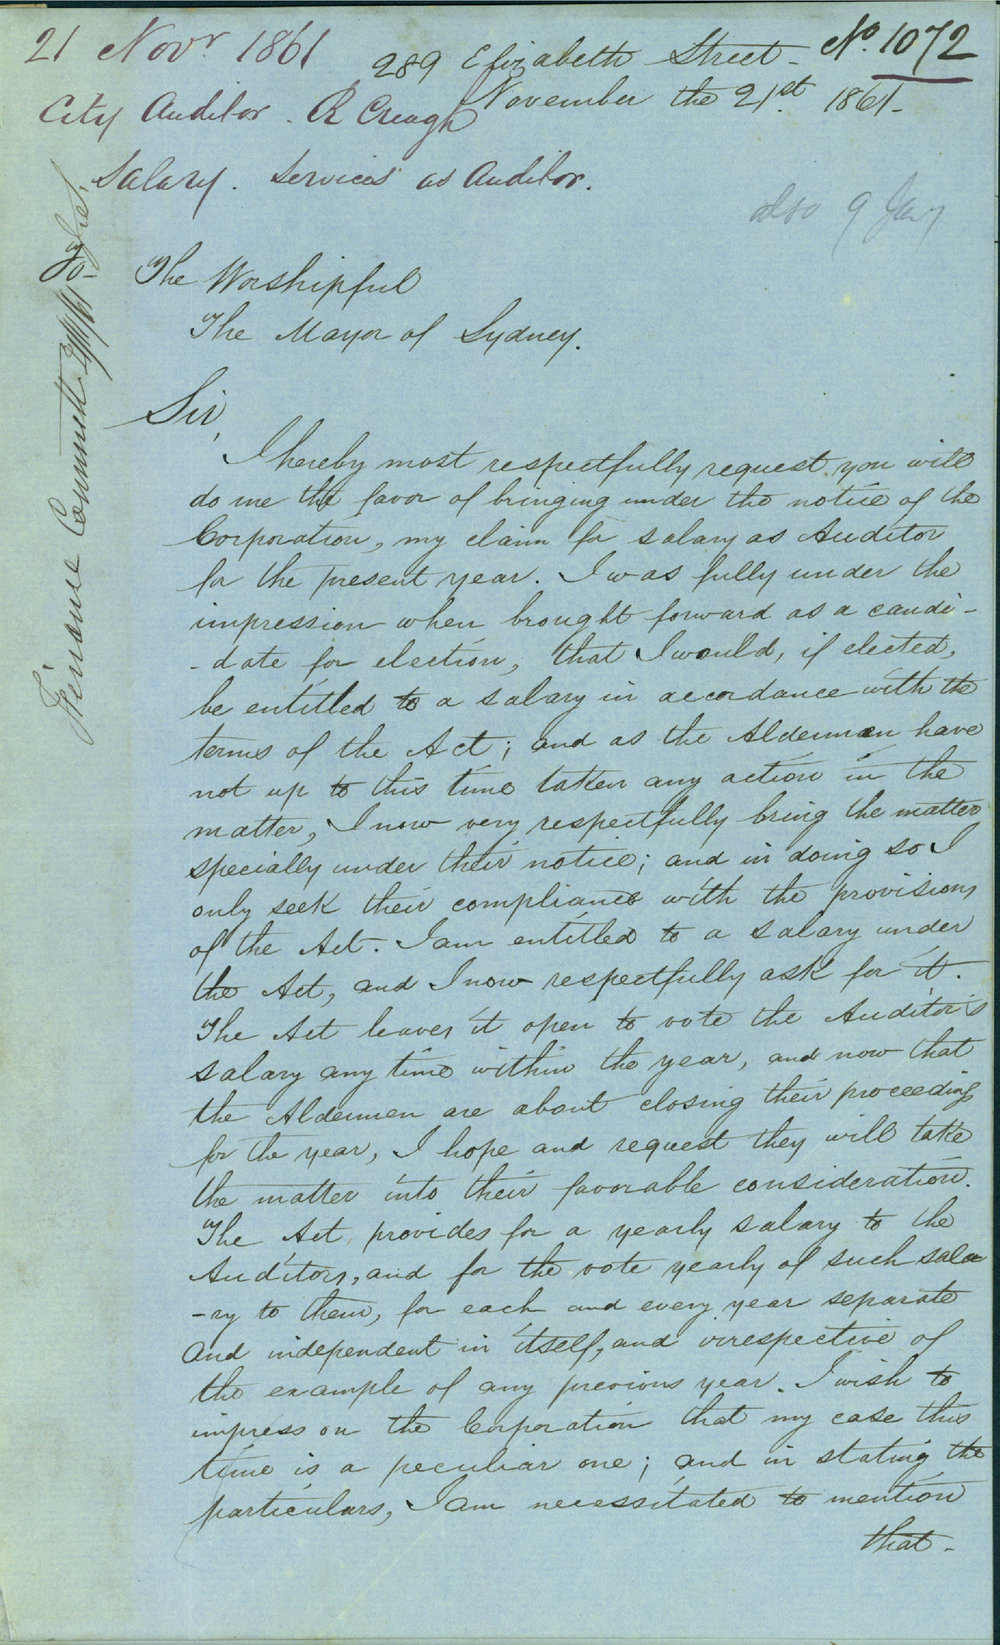 21 Novr 1861
No. 1072
289 Elizabeth Street
November the 21st. 1861.
City Auditor. R Creagh
Salary. Services as Auditor.
also 9 Jany
Finance Committ
The Worshipful
The Mayor of Sydney.
Sir,
I hereby most respectfully request you will
do me the favor of bringing under the notice of the
Corporation, my claim for salary as Auditor
for the present year. I was fully under the
impression when brought forward as a candi-
-date for election, that I would, if elected,
be entitled to a salary in accordance with the
terms of the Act; and as the Aldermen have
not up to this time taken any action in the
matter, I now very respectfully bring the matter
specially under their notice; and in doing so I
only seek their compliance with the provisions
of the Act. I am entitled to a salary under
the Act, and I now respectfully ask for it.
The Act leaves it open to vote the Auditor's
salary any time within the year, and now that
the Aldermen are about closing their proceedings
for the year, I hope and request they will take
the matter into their favorable consideration.
The Act provides for a yearly salary to the
Auditors, and for the vote yearly of such sala
-ry to them, for each and every year separate
and independent in itself, and irrespective of
the example of any previous year. I wish to
impress on the Corporation that my case this
time is a peculiar one; and in stating the
particulars, I am necessitated to mention
that-